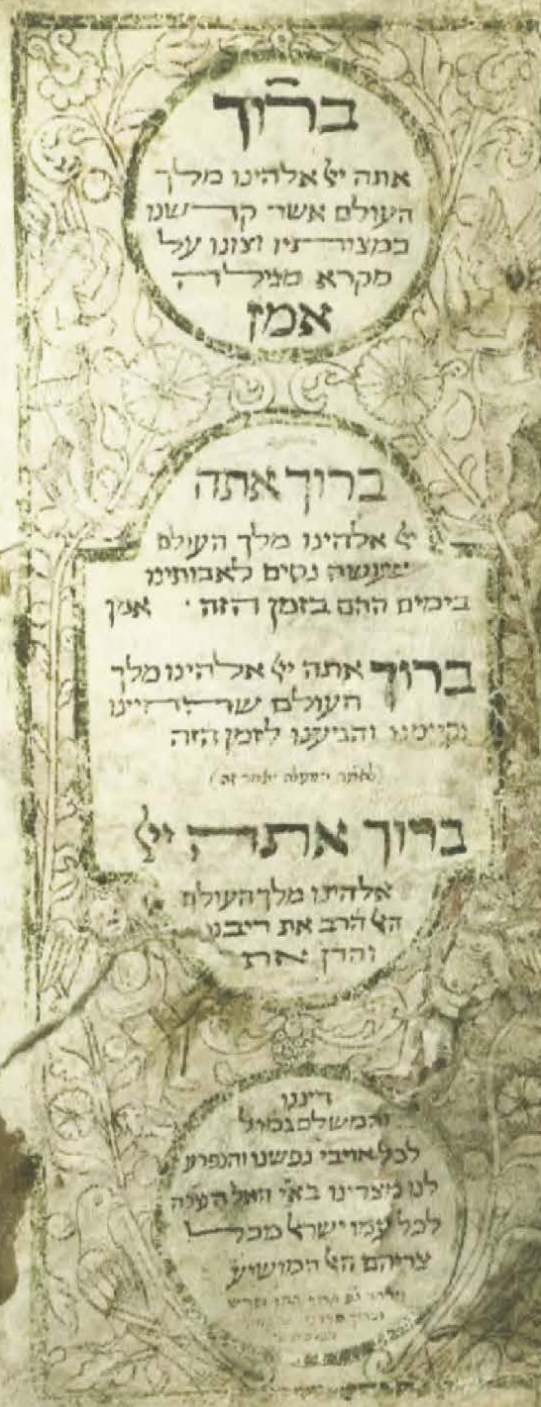 ברוך
אתה יי אלהינו מלך
העולם אשר קדשנו
במצותיו וצונו על
מקרא מגילה
אמן
ברוך אתה
יי אלהינו מלך העולם
שעשה נסים לאבותינו
בימים ההם בזמן הזה · אמן
ברוך אתה יי אלהינו מלך
העולם שהחיינו
וקיימנו והגיענו לזמן הזה
ברוך אתה יי
אלהינו מלך העולם
האל הרב את ריבנו
והדן את
דיננו
והמשלם גמול
לכל אויבי נפשנו והנפרע
לנו מצרינו בא״י האל הנפרע
לכל עמו ישראל מכל
צריהם האל המושיע